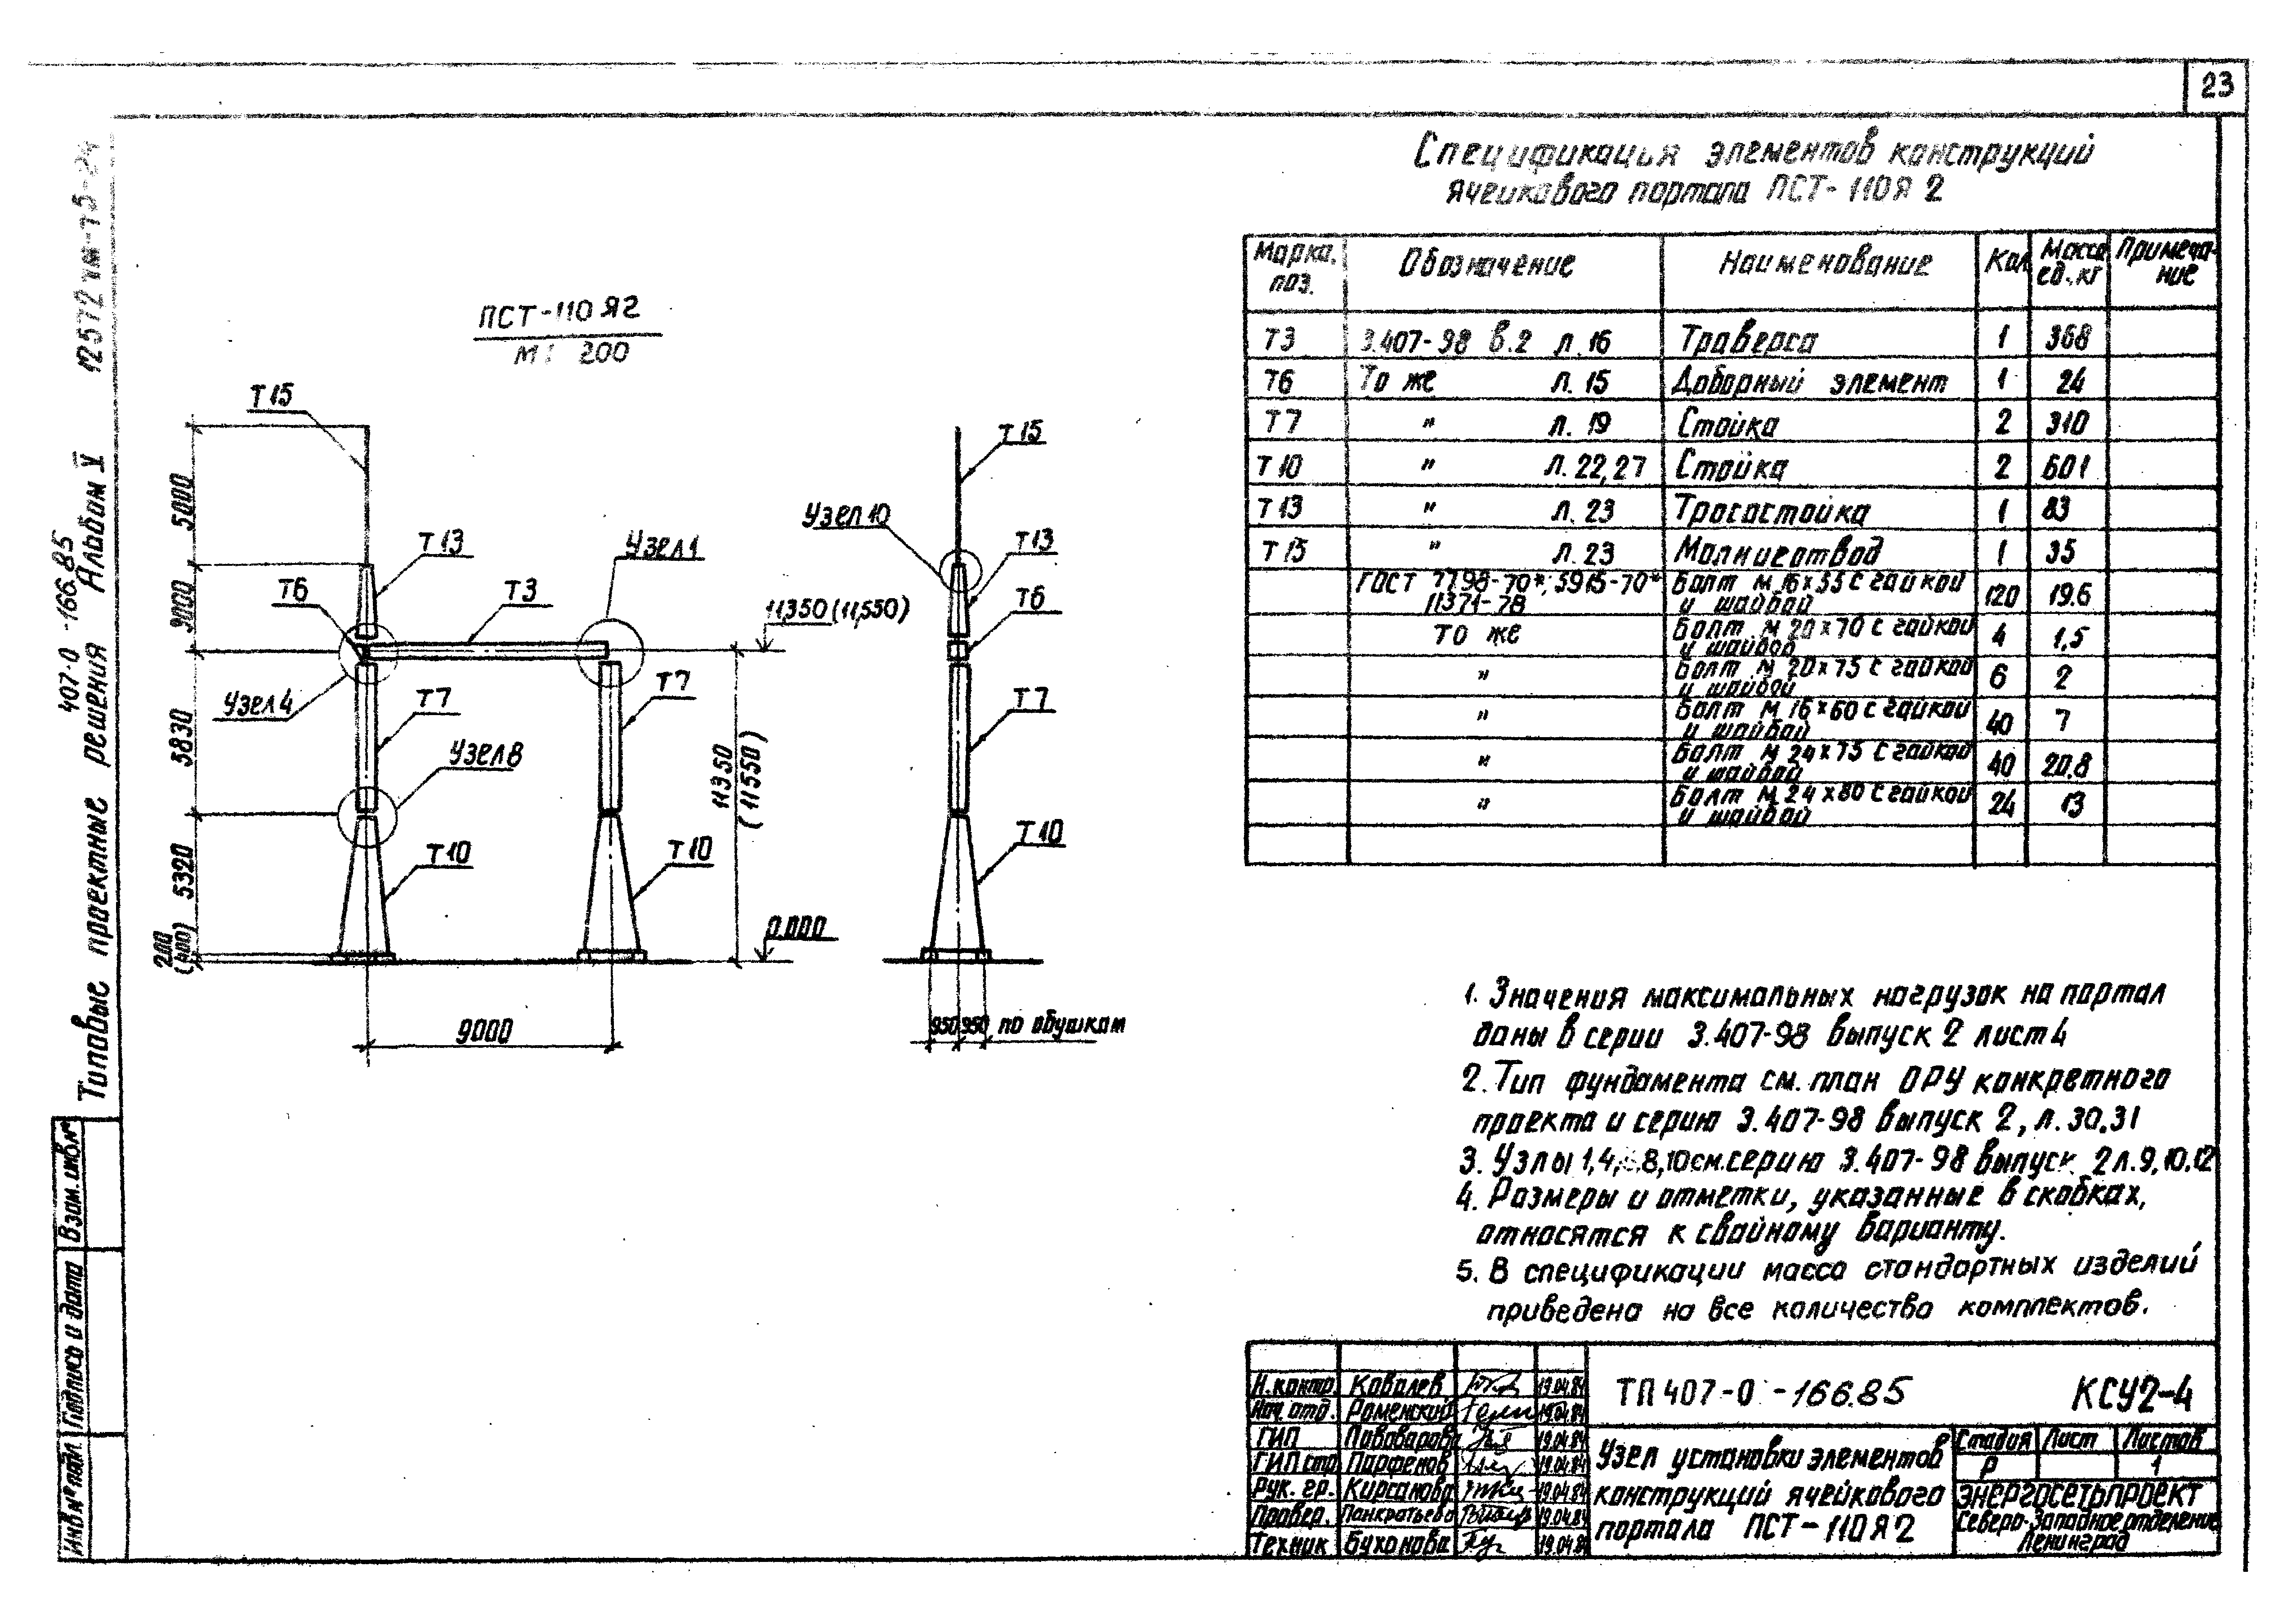 23
Спецификация элементов конструкций
ячейкового портала ПСТ-110Я2
Марка, поз. Обозначение Наименование Кол Масса ед., кг Примеча-ние
Т3 3.407-98 в.2 л.16 Траверса 1 368
Т6 То же л.15 Доборный элемент 1 24
Т7 " л.19 Стойка 2 310
Т10 " л.22,27 Стойка 2 601
Т13 " л.23 Тросостойка 1 83
Т15 " л.23 Молниеотвод 1 35
ГОСТ 7798-70*; 5915-70* 11371-78 Болт М16х55 с гайкой и шайбой 120 19.6
То же Болт М20х70 с гайкой и шайбой 4 1,5
" Болт М20х75 с гайкой и шайбой 6 2
" Болт М16х60 с гайкой и шайбой 40 7
" Болт М24х75 с гайкой и шайбой 40 20.8
" Болт М24х80 с гайкой и шайбой 24 13
ПСТ-110Я2
М 1: 200
Т15
Т13
Т6
Т3
Узел 1
Узел 4
Т7
Т7
Узел 8
Т10
Т10
5000
5830
5320
200
(400)
9000
11,350 (11,550)
11350
(11550)
0.000
Т15
Узел 10
Т13
Т6
Т7
Т10
950 950 по обушкам
1. Значения максимальных нагрузок на портал
даны в серии 3.407-98 выпуск 2 лист 4
2. Тип фундамента см. план ОРУ конкретного
проекта и серию 3.407-98 выпуск 2, л.30,31
3. Узлы 1,4, 8,10 см. серию 3.407-98 выпуск 2 л.9,10,12
4. Размеры и отметки, указанные в скобках,
относятся к свайному варианту.
5. В спецификации масса стандартных изделий
приведена на все количество комплектов.
Н.контр. Ковалев 19.04.84
Нач.отд. Роменский 19.04.84
ГИП Пивоварова 19.04.84
ГИП стр. Парфенов 19.04.84
Рук. гр. Кирсанова 19.04.84
Провер. Панкратьева 19.04.84
Техник Бухонова 19.04.84
ТП 407-0-166.85 КСУ2-4
Узел установки элементов
конструкций ячейкового
портала ПСТ-110Я2
Стадия Лист Листов
Р 1
ЭНЕРГОСЕТЬПРОЕКТ
Северо-Западное отделение
Ленинград
407-0-166.85
Типовые проектные решения Альбом V
Взам. инв.№
Подпись и дата
Инв.№ подл.